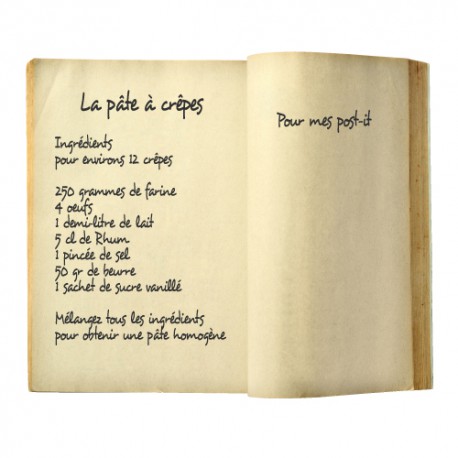 La pâte à crêpes
Ingrédients
pour environs 12 crêpes
250 grammes de farine
4 oeufs
1 demi-litre de lait
5 cl de Rhum
1 pincée de sel
50 gr de beurre
1 sachet de sucre vanillé
Mélangez tous les ingrédients
pour obtenir une pâte homogène
Pour mes post-it